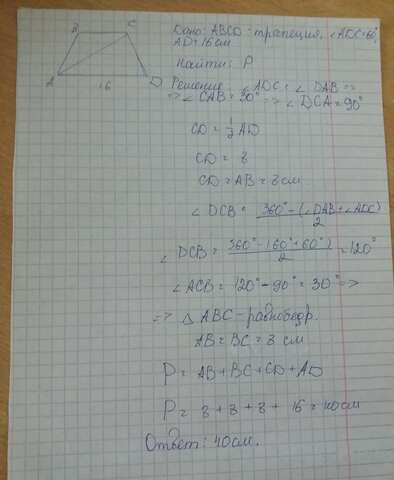 B C
A D
16
Дано: ABCD - трапеция, ∠ADC=60°,
AD=16 см
Найти: P
Решение ∠ADC = ∠DAB =>
=> ∠CAB = 30° => ∠DCA = 90°
CD = 1/2 AD
CD = 8
CD = AB = 8 см
∠DCB = 360° - (∠DAB + ∠ADC) / 2
∠DCB = 360° - (60° + 60°) / 2 = 120°
∠ACB = 120° - 90° = 30° =>
=> △ ABC - равнобедр.
AB = BC = 8 см
P = AB + BC + CD + AD
P = 8 + 8 + 8 + 16 = 40 см
Ответ: 40 см.